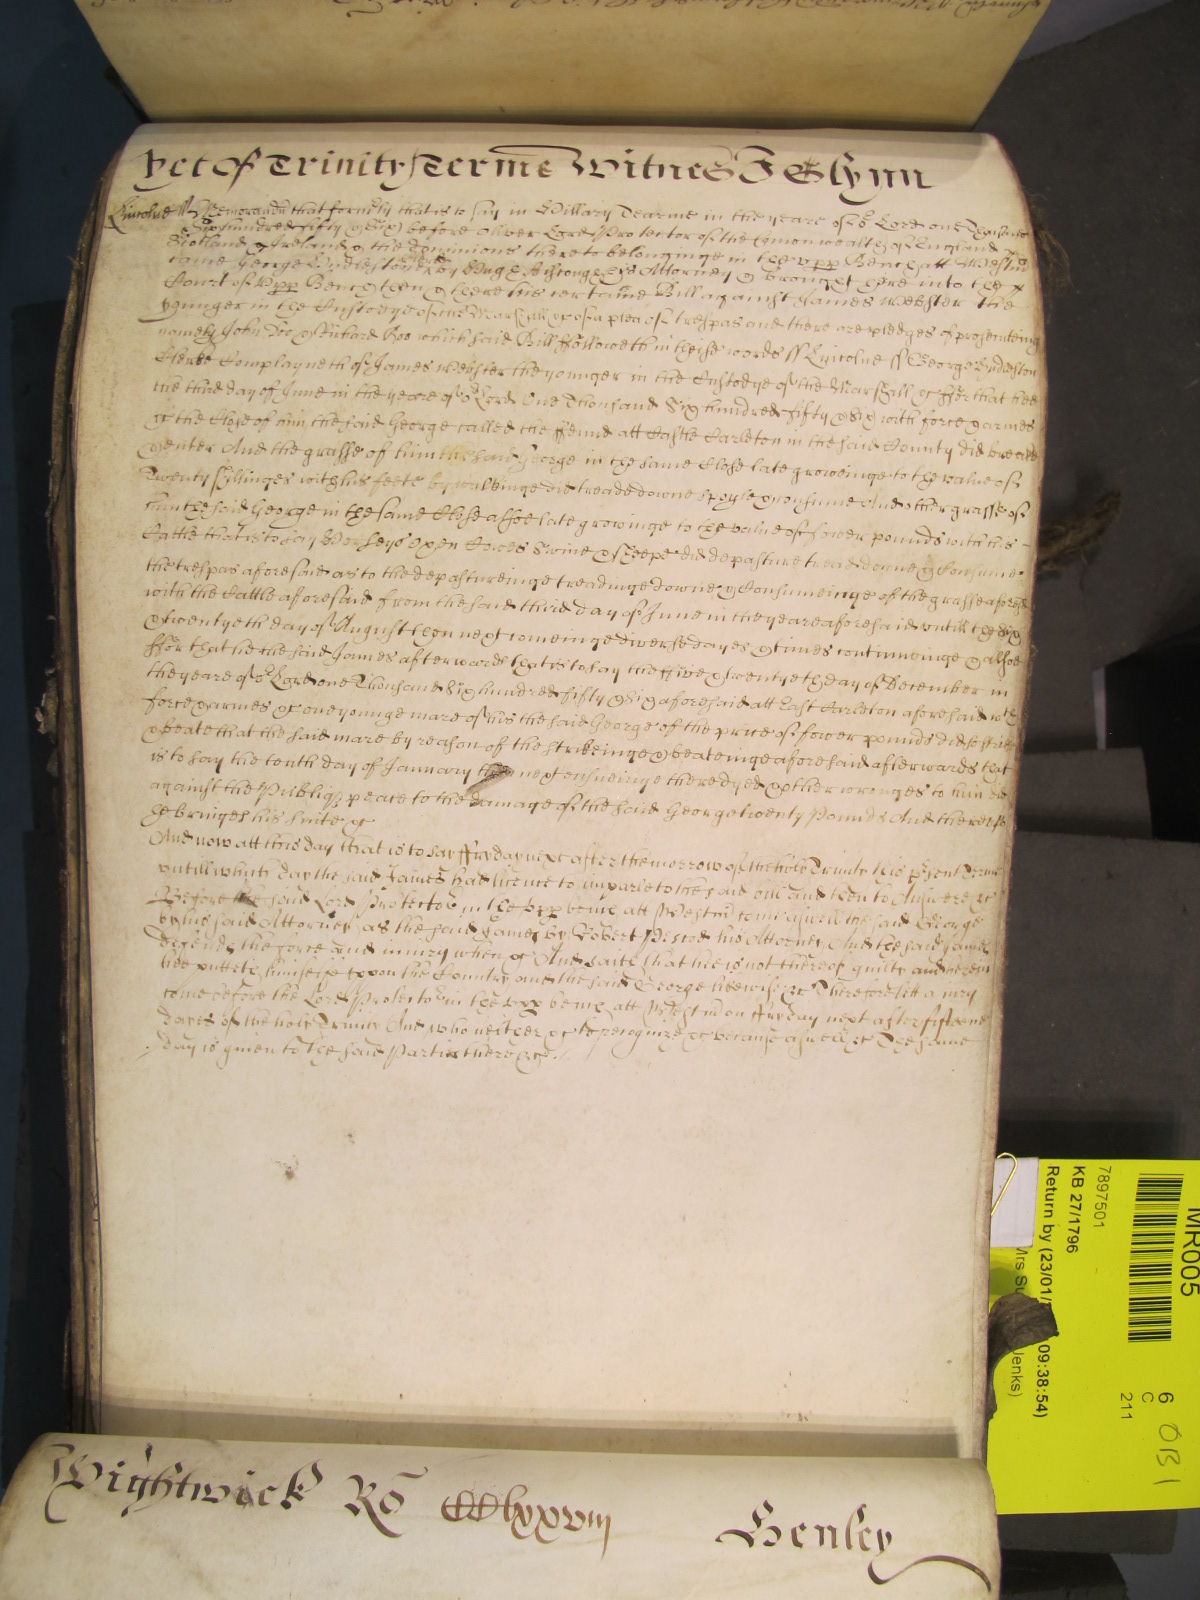 yet of Trinity Terme Witnes J Glynn
Lincolne ss Memorandum that formerly that is to say in Hillary Tearme in the yeare of or Lord one Thousand
Six hundred fifty & Six before Oliver Lord Protector of the Comonwealth of England
Scotland & Ireland & the dominions thereto belonginge in the Upp Bench att Westmr
came George by Hugh his Attorney & brought here into the
Court of Upp Bench then & there his certaine Bill against James Webster the
younger in the Custody of the Marshall &c of a plea of trespas and there are pledges of prosecuteing
namely John Doo & Richard Roo which said Bill followeth in theise words ss Lincolne ss George
Clerke Complayneth of James Webster the younger in the Custodye of the Marshall &c ffor that hee
the third day of June in the yeare of or Lord One Thousand Six hundred fifty & Six with force & armes
&c the Close of him the said George called the ffennd att Castle Carleton in the said County did breake
& enter And the grasse of him the said George in the same Close late groweinge to the value of
Twenty shillinges with his feete by walkinge did treade downe spoyle & consume And other grasse of
him the said George in the same Close alsoe late growinge to the value of fower pounds with his
Cattle that is to say Horses Oxen Cowes Swine & sheepe did depasture tread downe & Consume
the trespas aforesaid as to the depastureinge treadinge downe & Consumeinge of the grasse aforesd
with the Cattle aforesaid from the said third day of June in the yeare aforesaid untill the six
& twentyeth day of August then next comeinge diverse dayes & times continueinge & alsoe
ffor that he the said James afterwards that is to say the ffive & twentyeth day of December in
the yeare of or Lord one Thousand Six hundred fifty & Six aforesaid att East Carleton aforesaid with
force & armes &c one younge mare of his the said George of the price of fower pounds did soe strike
& beate that the said mare by reason of the strikeinge & beateinge aforesaid afterwards that
is to say the tenth day of January then next ensueinge there dyed & other wronges to him did
against the Publiq peace to the damage of the said George twenty Pounds And thereof
he bringes his suite &c
And now att this day that is to say ffryday next after the morrow of the holy Trinity this psent Terme
untill which day the said James had licence to imparle to the said bill and then to Answere &c
Before the said Lord Protector in the Upp bench att Westmr come aswell the said George
by his said Attorney as the said James by Robert his Attorney And the said James
defends the force and iniury when &c And saith that hee is not thereof guilty and hereon
hee putteth himselfe uppon the Country and the said George likewise &c Therefore lett a iury
come before the Lord Protector in the Upp bench att Westmr on ffryday next after fifteene
dayes of the holy Trinity And who neither &c to recognize &c because aswell &c The same
day is given to the said Parties there &c
Wightwick Ro CClxxviij Henley
MR005
7897501
KB 27/1796
Return by (23/01/ 09:38:54)
Mrs Su Jenks)
6
C
211
OB1